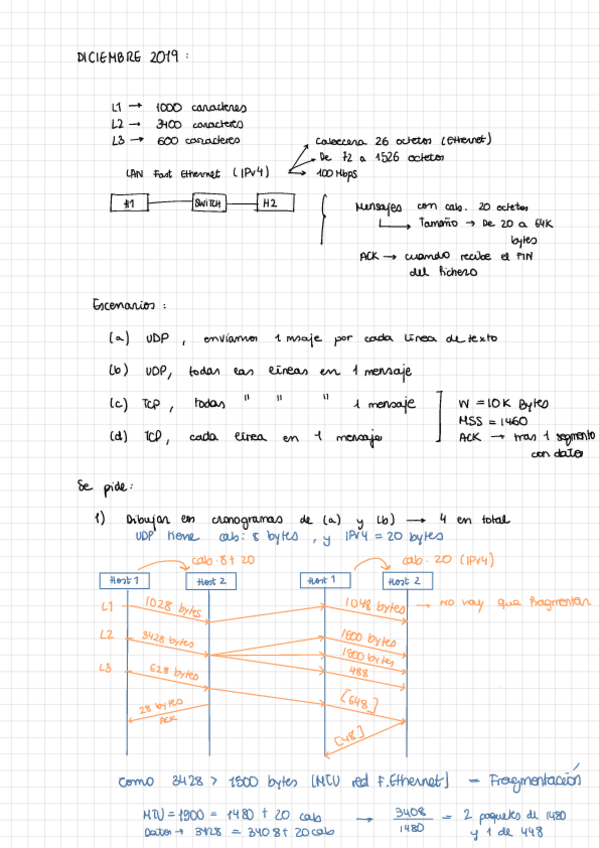 DICIEMBRE 2019 :
L1 → 1000 caracteres
L2 → 3400 caracteres
L3 → 600 caracteres
Cabecera 26 octetos (Ethernet)
De 72 a 1526 octetos
LAN Fast Ethernet (IPv4) → 100 Mbps
H1 SWITCH H2
Mensajes con cab. 20 octetos
Tamaño → De 20 a 64K
bytes
ACK → cuando recibe el FIN
del fichero
Escenarios :
(a) UDP , enviamos 1 msaje por cada línea de texto
(b) UDP, todas las líneas en 1 mensaje
(c) TCP , todas " " " 1 mensaje
(d) TCP , cada línea en 1 mensaje
W = 10K Bytes
MSS = 1460
ACK → tras 1 segmento
con datos
Se pide:
1) Dibujar en cronogramas de (a) y (b) → 4 en total
UDP tiene cab: 8 bytes , y IPv4 = 20 bytes
cab. 8+ 20
cab. 20 (IPv4)
Host 1 Host 2 Host 1 Host 2
L1 1028 bytes 1048 bytes → No hay que fragmentar
L2 3428 bytes 1500 bytes
1500 bytes
L3 628 bytes 488
28 bytes
ACK
[648]
[48]
Como 3428 > 1500 bytes (MTU red F.Ethernet) – Fragmentación
MTU = 1500 = 1480 + 20 cab → 3408/1480 = 2 paquetes de 1480
Datos → 3428 = 3408 + 20 cab y 1 de 448